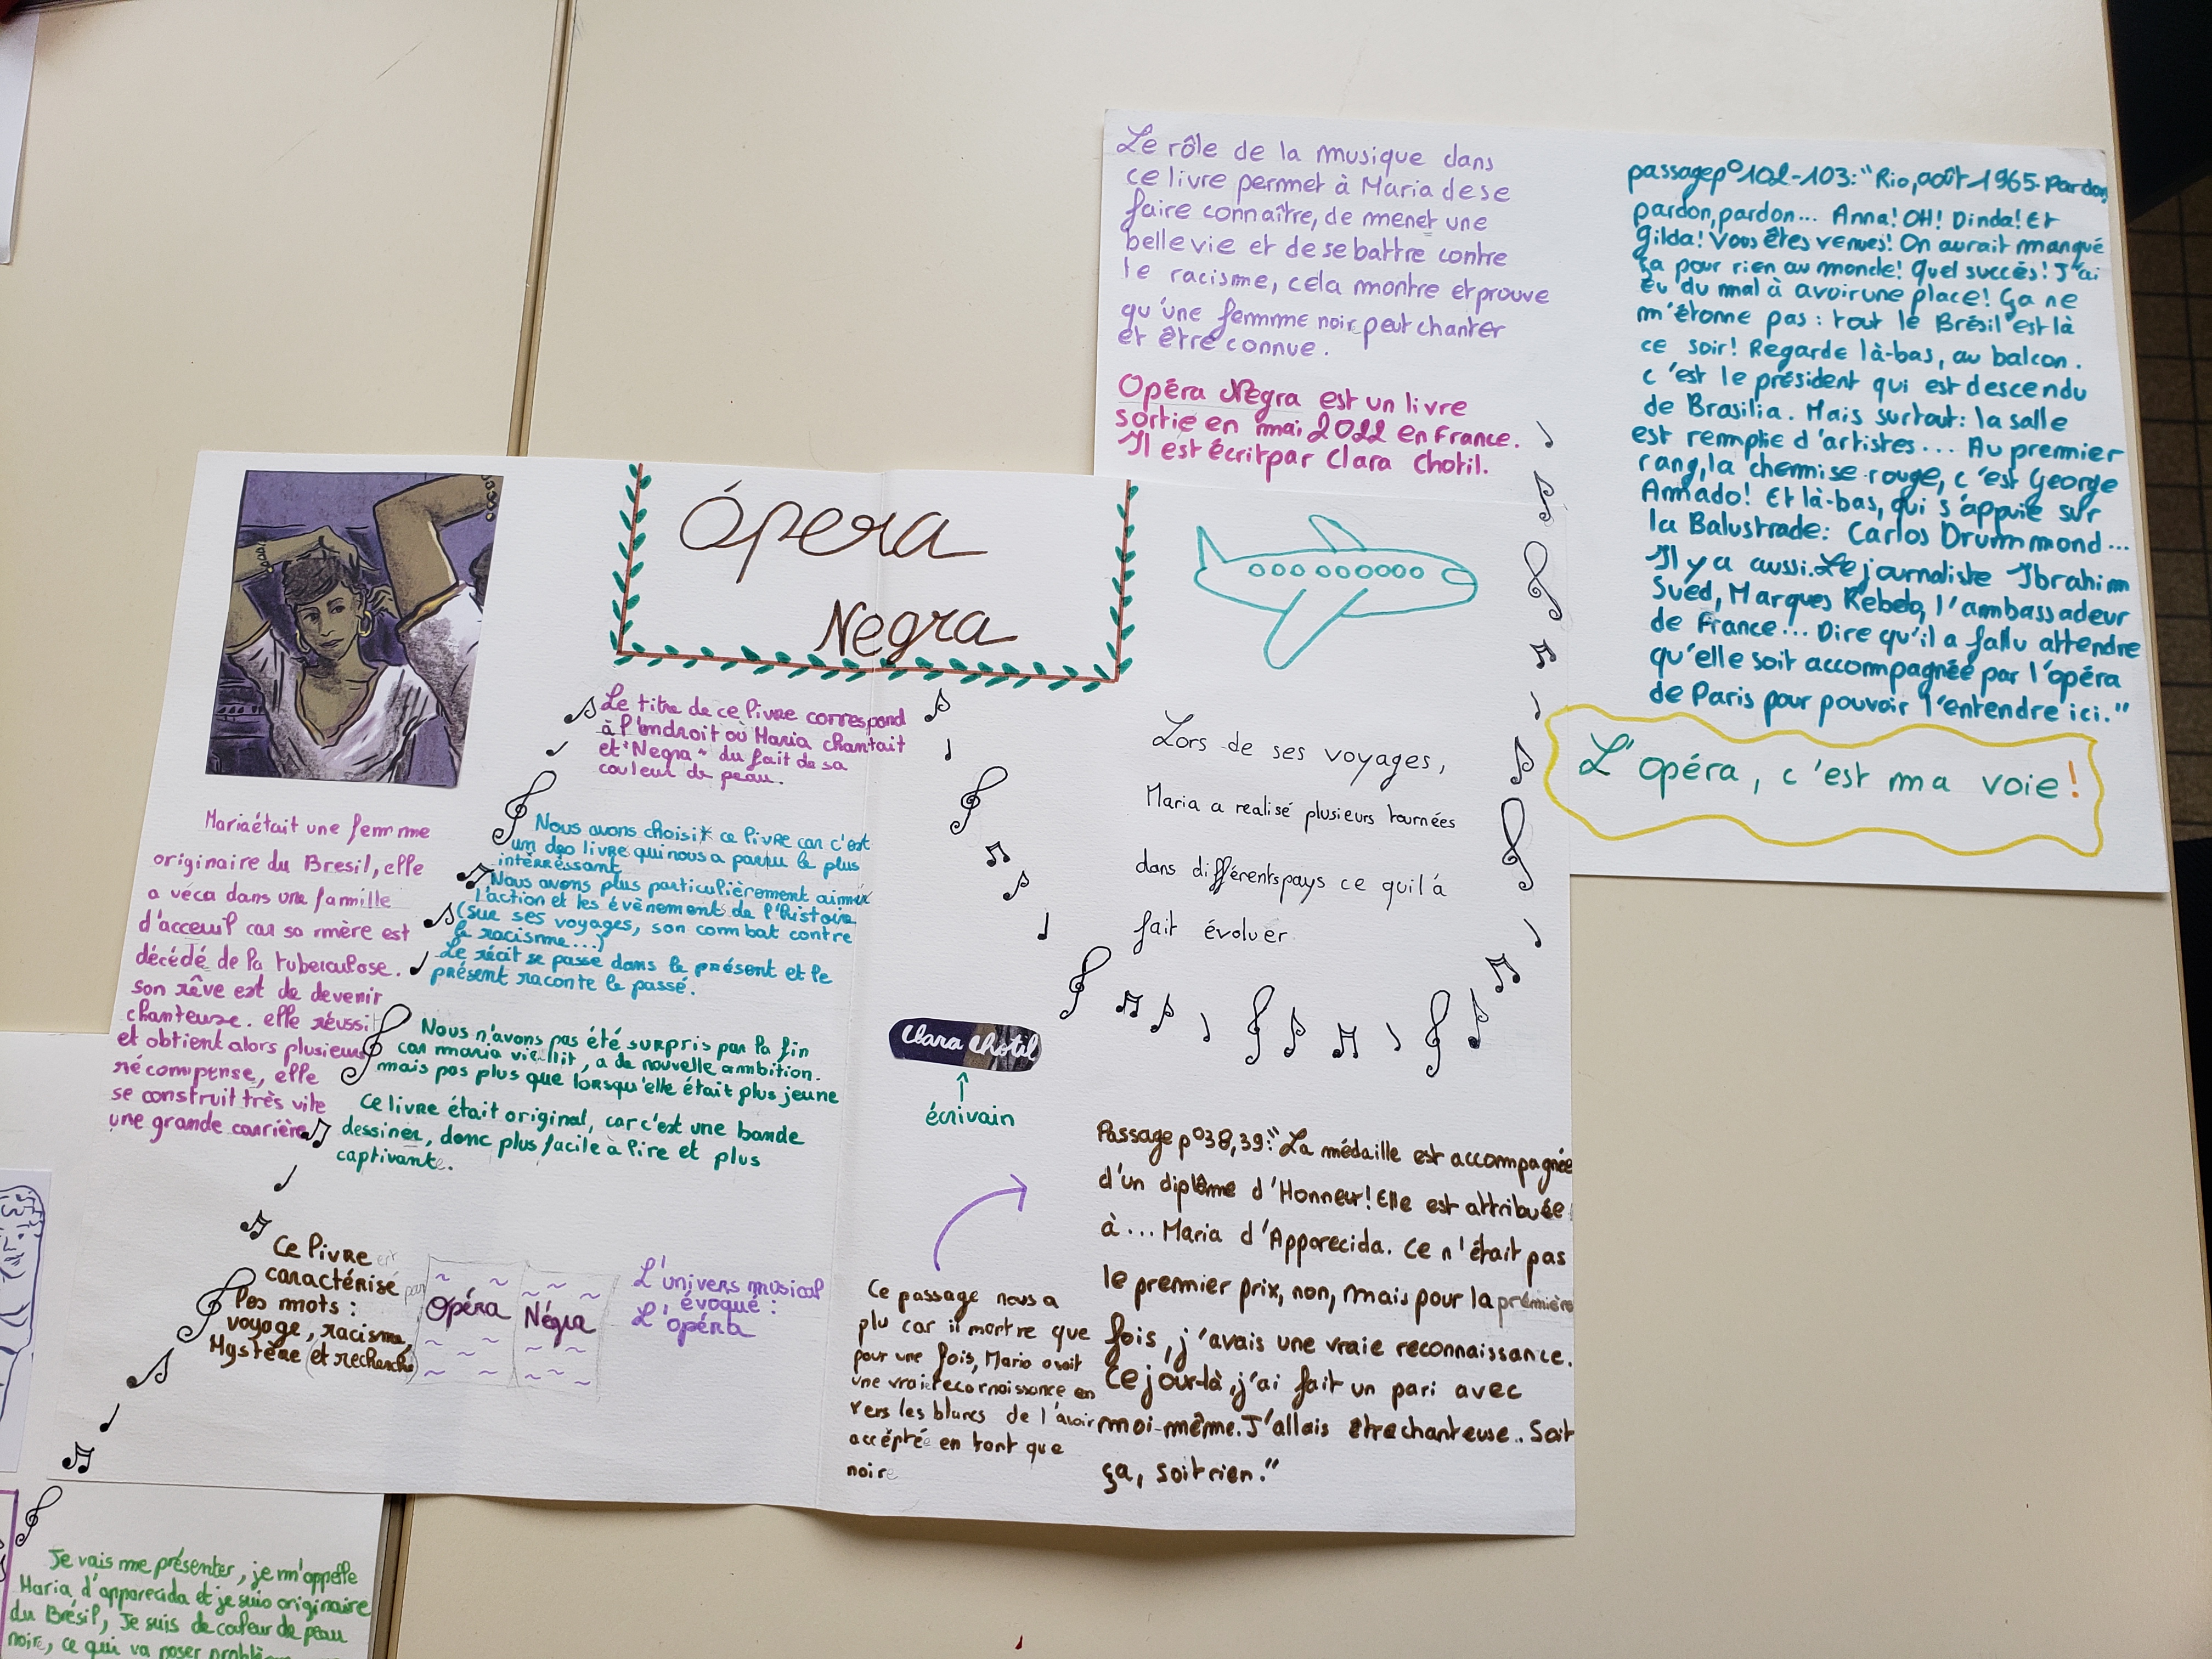 Le rôle de la musique dans
ce livre permet à Maria de se
faire connaître, de menet une
belle vie et de se battre contre
le racisme, cela montre et prouve
qu'une femme noir peut chanter
et être connue.
Opéra Négra est un livre
sortie en mai 2022 en France.
Il est écrit par Clara Chotil.
passage p°102-103: "Rio, août 1965. Pardon,
pardon, pardon... Anna! OH! Dinda! Et
Gilda! Vous êtes venues! On aurait manqué
ça pour rien au monde! Quel succès! J'ai
eu du mal à avoir une place! ça ne
m'étonne pas: tout le Brésil est là
ce soir! Regarde là-bas, au balcon.
c'est le président qui est descendu
de Brasilia. Mais surtout: la salle
est remplie d'artistes... Au premier
rang, la chemise rouge, c'est George
Amado! Et là-bas, qui s'appuie sur
la Balustrade: Carlos Drummond...
Il y a aussi. Le journaliste Ibrahim
Sued, Marques Rebelo, l'ambassadeur
de France... Dire qu'il a fallu attendre
qu'elle soit accompagnée par l'opéra
de Paris pour pouvoir l'entendre ici."
L'opéra, c'est ma voie!
Ópera
Negra
Le titre de ce livre correspond
à l'endroit où Maria chantait
et "Negra" du fait de sa
couleur de peau.
Maria était une femme
originaire du Bresil, elle
a véca dans une famille
d'acceuil car sa mère est
décédé de la tuberculose.
son rêve est de devenir
chanteuse. elle réussi
et obtient alors plusieurs
récompense, elle
se construit très vite
une grande carrière
Nous avons choisi ce livre car c'est
un des livre qui nous a paru le plus
intérréssant
Nous avons plus particulièrement aimé
l'action et les évènement de l'histoire
(sur ses voyages, son combat contre
le racisme...)
Le récit se passe dans le présent et le
présent raconte le passé.
Nous n'avons pas été surpris par la fin
car maria vieillit, a de nouvelle ambition.
mais pas plus que lorsqu'elle était plus jeune
Ce livre était original, car c'est une bande
dessiner, donc plus facile à lire et plus
captivante.
Ce livre est
caractérisé par
les mots:
voyage, racisme,
Mystère (et recherche)
Opéra Négra
L'univers musical
évoqué:
L'opéra
Lors de ses voyages,
Maria a realisé plusieurs tournées
dans différents pays ce quil à
fait évoluer
Clara Chotil
écrivain
Passage p°38,39: "La médaille est accompagnée
d'un diplôme d'Honneur! Elle est attribuée
à... Maria d'Apparecida. Ce n'était pas
le premier prix, non, mais pour la première
fois, j'avais une vraie reconnaissance.
Ce jour-là, j'ai fait un pari avec
moi-même. J'allais être chanteuse.. Soit
ça, soit rien."
Ce passage nous a
plu car il montre que
pour une fois, Maria avait
une vraie reconnaissance en
vers les blancs de l'avoir
accéptée en tant que
noire
Je vais me présenter, je m'appelle
Maria d'apparecida et je suis originaire
du Brésil, Je suis de couleur de peau
noire, ce qui va poser